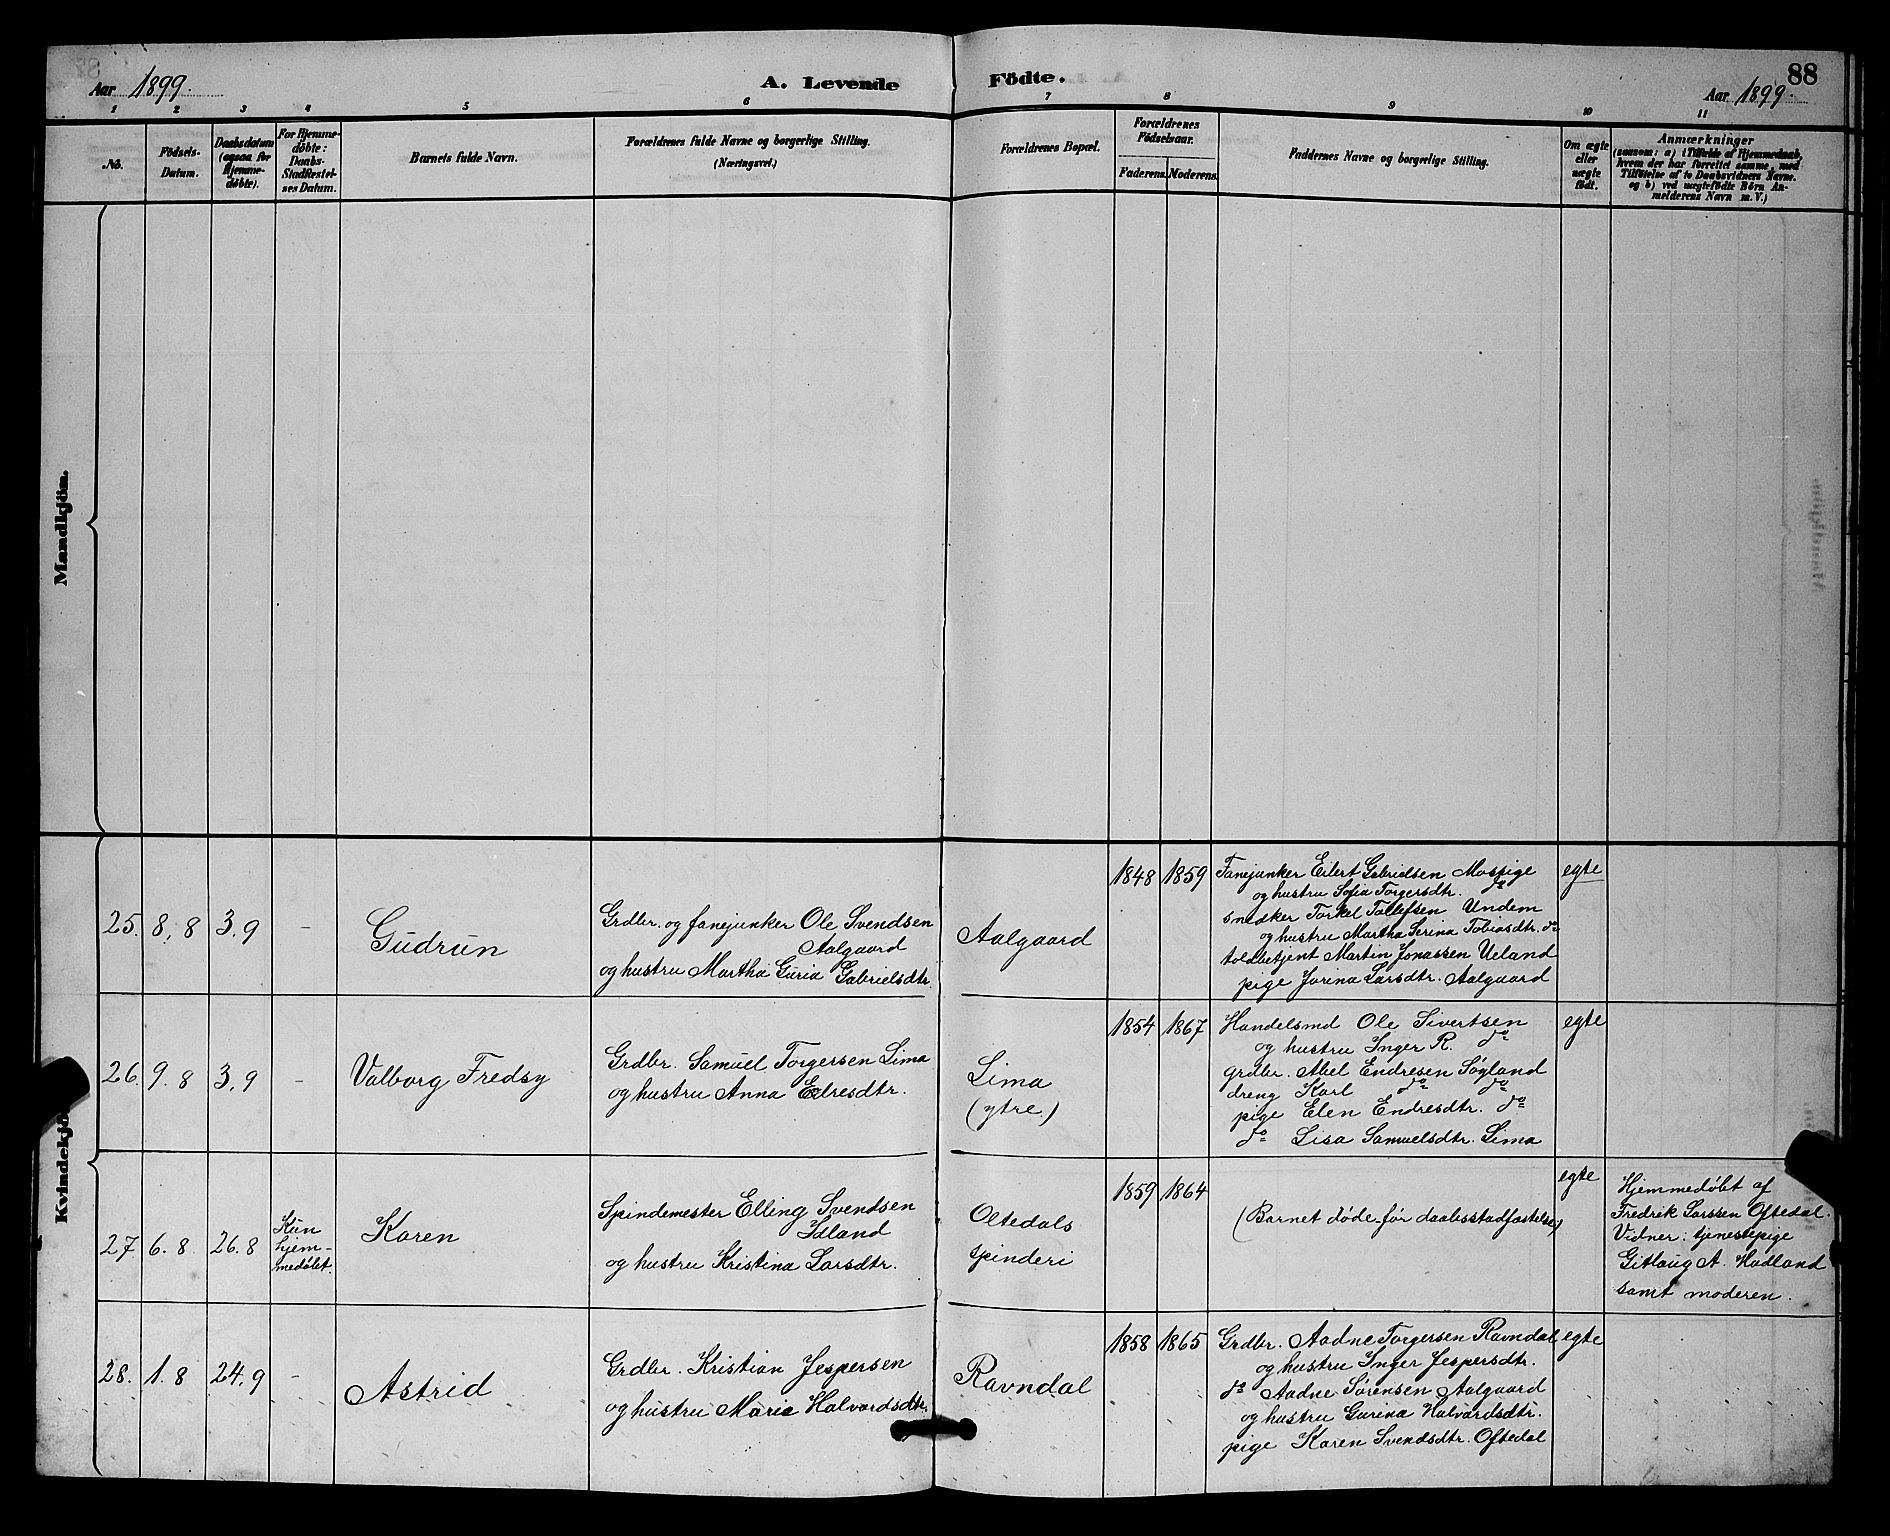 Aar 1899.
A. Levende Födte.
88
Aar 1899.
1 2 3 4 5 6 7 8 9 10 11
No.
Födsels-
Datum.
Daabsdatum
(ogsaa for
Hjemme-
döbte).
For Hjemme-
döbte:
Daabs-
Stadfæstel-
ses Datum.
Barnets fulde Navn.
Forældrenes fulde Navne og borgerlige Stilling.
(Næringsvei.)
Forældrenes Bopæl.
Forældrenes
Födselsaar.
Faderens. Moderens.
Faddernes Navne og borgerlige Stilling.
Om ægte
eller
uægte
födt.
Anmærkninger
(saasom: a) i Tilfælde af Hjemmedaab,
hvem der har forrettet samme, med
Tilföielse af to Daabsvidners Navne.
og b) ved uægtefödte Börn An-
melderens Navn m. V.)
Mandkjön.
Kvindekjö
25. 8.8 3.9 -
Gudrun
Grdbr. og fanejunker Ole Svendsen
Aalgaard
og hustru Martha Guria Gabrielsdtr.
Aalgaard
1848 1859
Fanejunker Eilert Gabrielsen Mossige
og hustru Sofia Torgersdtr. do
snedker Torkel Tollefsen Undem
og hustru Martha Serina Tobiasdtr. do
toldbetjent Martin Jonassen Ueland
pige Jorina Larsdtr. Aalgaard
egte
26. 9.8 3.9 -
Valborg Fredsy
Grdbr. Samuel Torgersen Lima
og hustru Anna Edresdtr.
Lima
(ytre.)
1854 1867
Handelsmd Ole Sivertsen
og hustru Inger R. do
grdbr. Abel Endresen Søyland
dreng Karl do do
pige Elen Endresdtr. do
do Lisa Samuelsdtr. Lima
egte
27 6.8 26.8
Kun
hjem-
medøbt.
Karen
Spindemester Elling Svendsen
Idland
og hustru Kristina Larsdtr.
Oltedals
spinderi
1859 1864
(Barnet døde før daabsstadfæstelse)
egte
Hjemmedøbt af
Fredrik Larsen Oftedal.
Vidner: tjenestepige
Gitlaug A. Hadland
samt moderen.
28. 1.8 24.9 -
Astrid
Grdbr. Kristian Jespersen
og hustru Marie Halvardsdtr.
Ravndal
1858 1865
Grdbr. Aadne Torgersen Ravndal
og hustru Inger Jespersdtr.
do Aadne Sørensen Aalgaard
og hustru Gurina Halvardsdtr.
pige Karen Svendsdtr. Oftedal
egte